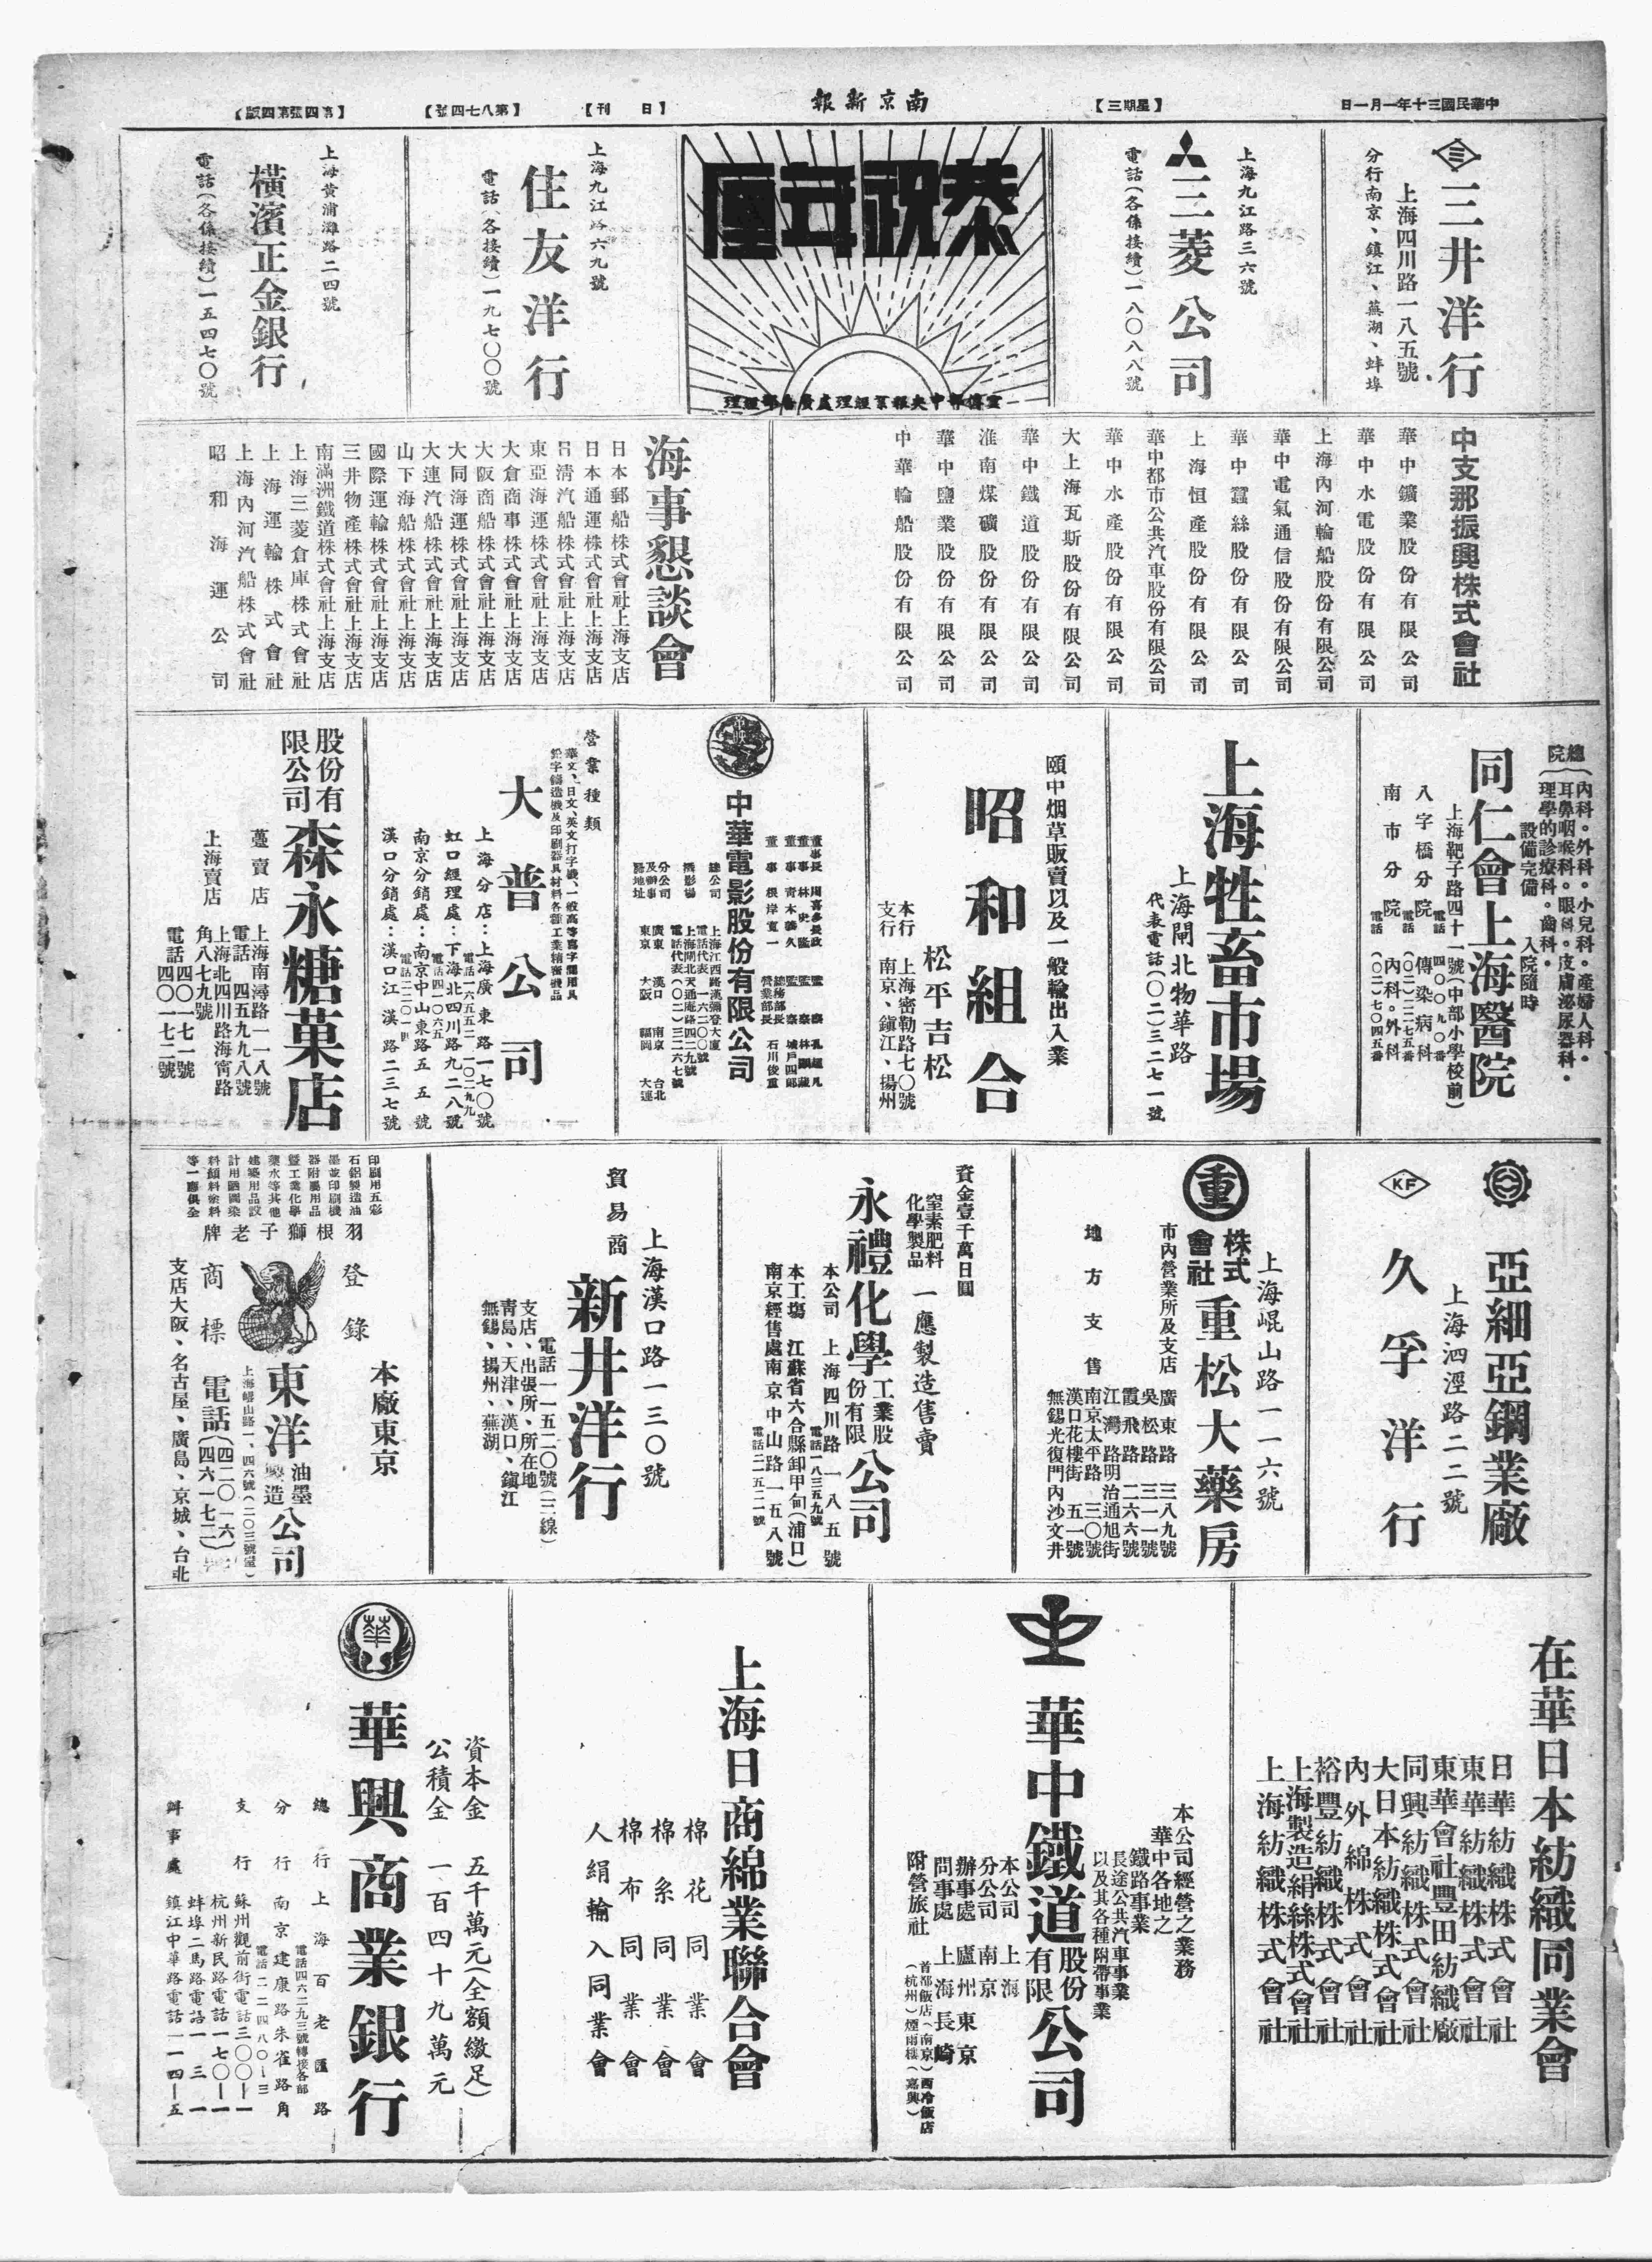 中華民國三十年一月一日
【星期三】
南京新報
【日刊】
【第八七四號】
【第四張第四版】
三井洋行
上海四川路一八五號
分行南京、鎮江、蕪湖、蚌埠
上海九江路三六號
三菱公司
電話(各係接續)一八〇八八號
恭祝元旦
宣傳部中央報業經理處廣告部經理
上海九江路六九號
住友洋行
電話(各接續)一九七〇〇號
上海黃浦灘路二四號
橫濱正金銀行
電話(各係接續)一五四七〇號
中支那振興株式會社
華中鑛業股份有限公司
華中水電股份有限公司
上海內河輪船股份有限公司
華中電氣通信股份有限公司
華中蠶絲股份有限公司
上海恒產股份有限公司
華中都市公共汽車股份有限公司
華中水產股份有限公司
大上海瓦斯股份有限公司
華中鐵道股份有限公司
淮南煤礦股份有限公司
華中鹽業股份有限公司
中華輪船股份有限公司
海事懇談會
日本郵船株式會社上海支店
日本通運株式會社上海支店
日清汽船株式會社上海支店
東亞海運株式會社上海支店
大倉商事株式會社上海支店
大阪商船株式會社上海支店
大同海運株式會社上海支店
大連汽船株式會社上海支店
山下海船株式會社上海支店
國際運輸株式會社上海支店
三井物產株式會社上海支店
南滿洲鐵道株式會社上海支店
上海三菱倉庫株式會社
上海運輸株式會社
上海內河汽船株式會社
昭和海運公司
總院
內科。外科。小兒科。產婦人科。
耳鼻咽喉科。眼科。皮膚泌尿器科。
理學的診療科。齒科。
設備完備 入院隨時
同仁會上海醫院
上海靶子路四十一號(中部小學校前)
電話 四〇〇九〇番
八字橋分院 傳染病科
電話 (〇二)二二七五番
南市分院 內科。外科
電話 (〇二)七〇四五番
上海牲畜市場
上海閘北物華路
代表電話(〇二)三二七一號
頤中烟草販賣以及一般輸出入業
昭和組合
松平吉松
本行 上海密勒路七〇號
支行 南京、鎮江、揚州
中華電影股份有限公司
董事長 周喜多長政
董事 林史隆
董事 青木藤久
董事 根岸寬一
營業部長 石川俊重
總公司 上海江西路漢彌登大廈
電話代表 一六二〇〇號
攝影場 上海閘北天通庵路四二九號
電話代表(〇二)三二六七號
分公司及辦事處地址
南京 漢口 廣東 台北
東京 大阪 福岡 大連
營業種類
華文、日文、英文打字機、一般高等寫字間用具
鉛字鑄造機及印刷器具材料各種工業精密機品
大普公司
上海分店：上海廣東路一七〇號
電話一六五五二 一〇二九九
虹口經理處：下海北四川路九二八號
電話四一〇六五
南京分銷處：南京中山東路五五號
漢口分銷處：漢口江漢路二三七號
股份有限公司森永糖菓店
躉賣店 上海南潯路一一八號
電話 四五九九八號
上海賣店 上海北四川路海甯路角八七九號
電話 四〇一七一號
四〇一七二號
亞細亞鋼業廠
上海泗涇路二二號
KF
久孚洋行
重
上海崐山路一一六號
株式會社重松大藥房
市內營業所及支店
廣東路三八九號
吳松路三一一號
霞飛路二六六號
江灣路明治通旭街
地方支售
南京太平路三〇號
漢口花樓街五一號
無錫光復門內沙文井
資金壹千萬日圓
窒素肥料
化學製品 一應製造售賣
永禮化學工業股份有限公司
本公司 上海四川路一八五號
電話一八三五九號
本工場 江蘇省六合縣卸甲甸(浦口)
南京經售處南京中山路一五八號
電話二二五二一號
上海漢口路一三〇號
貿易商 新井洋行
電話一一五二〇號(二線)
支店、出張所、所在地
青島、天津、漢口、鎮江
無錫、揚州、蕪湖、
印刷用五彩
石鋁製造油
墨並印刷機
器附屬用品
暨工業化學
藥水等其他
建築用品設
計用晒圖染
料顏料涂料
等一應俱全
羽根獅子老牌
登錄商標
本廠東京
東洋油墨製造公司
電話(四二〇一六)
(四六一七二)
支店大阪、名古屋、廣島、京城、台北
在華日本紡織同業會
日華紡織株式會社
東華紡織株式會社
東華會社豐田紡織廠
同興紡織株式會社
大日本紡織株式會社
內外綿株式會社
裕豐紡織株式會社
上海製造絹絲株式會社
上海紡織株式會社
華中鐵道股份有限公司
本公司經營之業務
華中各地之
鐵路事業
長途公共汽車事業
以及其各種附帶事業
本公司 上海
分公司 南京
辦事處 廬州 東京
問事處 上海 長崎
附營旅社 首都飯店(南京)西冷飯店(杭州)煙雨樓(嘉興)
上海日商綿業聯合會
棉花同業會
棉糸同業會
棉布同業會
人絹輸入同業會
華
華興商業銀行
資本金 五千萬元(全額繳足)
公積金 一百四十九萬元
總行 上海百老匯路
電話四六二九三號轉接各部
分行 南京建康路朱雀路角
電話二二四八〇—三
支行 蘇州觀前街電話三〇〇—一
杭州新民路電話一七〇—一
蚌埠二馬路電話一三一
辦事處 鎮江中華路電話一一四—五